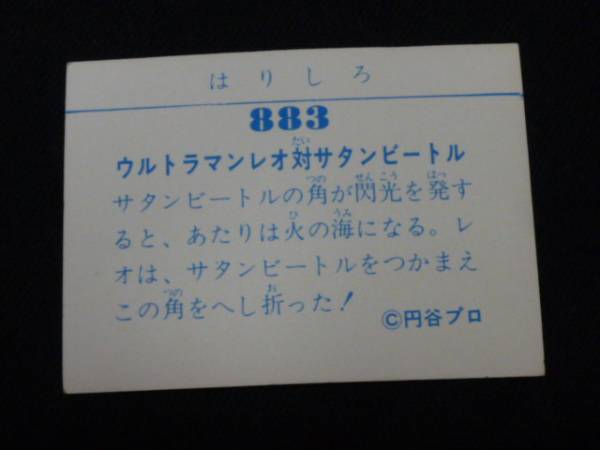 はりしろ
883
ウルトラマンレオ対サタンビートル
サタンビートルの角が閃光を発す
ると、あたりは火の海になる。レ
オは、サタンビートルをつかまえ
この角をへし折った!
©円谷プロ